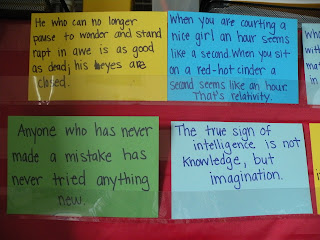 He who can no longer
pause to wonder and stand
rapt in awe is as good
as dead; his eyes are
closed.
When you are courting a
nice girl an hour seems
like a second. When you sit
on a red-hot cinder a
second seems like an hour.
That's relativity.
Who
wit
ma
Anyone who has never
made a mistake has
never tried anything
new.
The true sign of
intelligence is not
Knowledge, but
imagination.